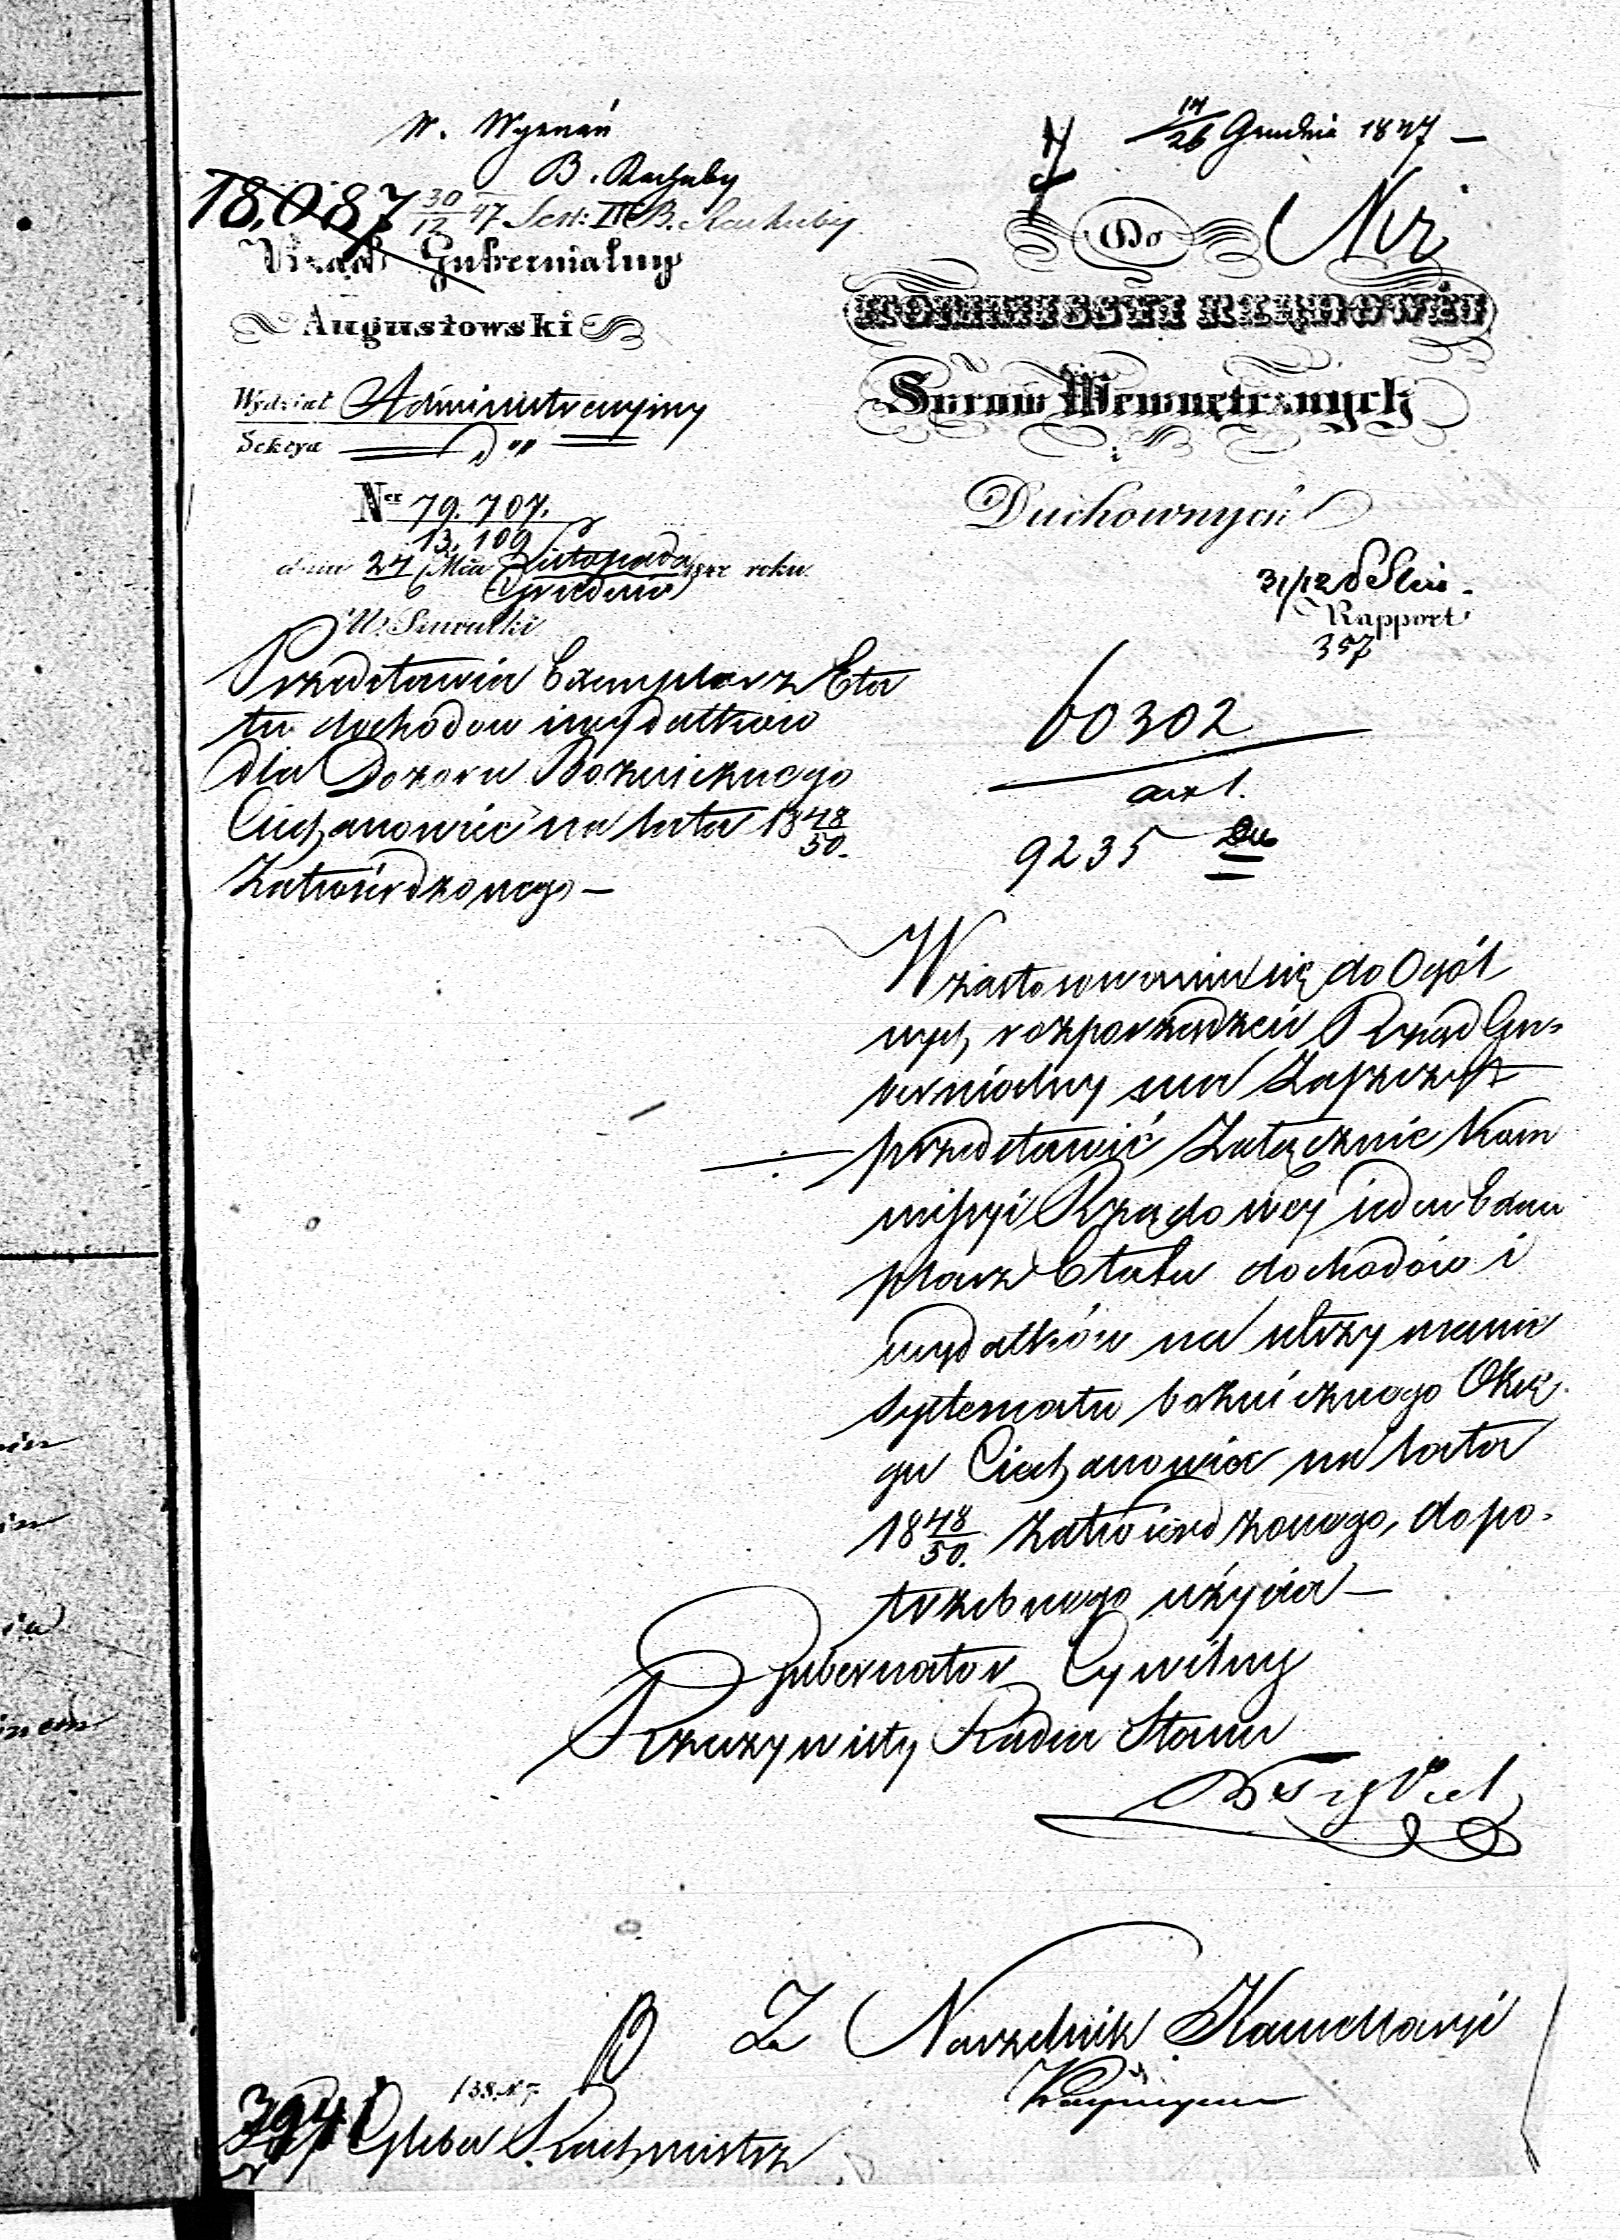 W. Wyznań
B. Rachuby
18,087 30/12 47 Sek: III B. Rachuby
Rząd Gubernialny
Augustowski
Wydział Administracyiny
Sekcya
Ner 79.707.
13.109
dnia 27 Mca Listopada roku
6 Grudnia
w Suwałki
Przedstawia Exemplarz Eta
tu dochodow i wydatkow
dla Dozoru Boznicznego
Ciechanowiec na lata 1848/50.
Zatwierdzonego —
14/26 Grudnia 1847 —
Do
KOMMISSYI RZĄDOWÉJ
Spraw Wewnętrznych
i
Duchownych
31/12
Rapport
357
60302
anx 1.
9235
W zastosowaniu się do Ogól
nych rozporządzeń Rząd Gu-
bernialny ma Zaszczyt
przedstawić Załącznie Kom
missyi Rządowey ieden Exem
plarz Etatu dochodów i
wydatków na utrzymanie
systematu bożnicznego Okrę
gu Ciechanowiec na lata
1848/50. Zatwierdzonego, do po-
trzebnego użycia —
Gubernator Cywilny
Rzeczywisty Radca Stanu
Za Naczelnik Kancellaryi
3941
Rachmistrz